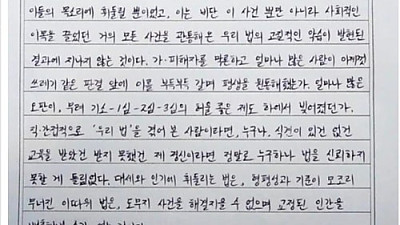 이들의 목소리에 휘둘릴 뿐이었고, 이는 비단 이 사건 뿐만 아니라 사회적인
이목을 끌었던 거의 모든 사건을 관통해온 우리 법의 고질적인 악습이 발현된
결과에 지나지 않는 것이다. 가·피해자를 막론하고 얼마나 많은 사람이 이제껏
쓰레기같은 판결 앞에 이를 부득부득 갈며 평생을 원통해했는가. 얼마나 많은
오판이, 무려 기소-1심-2심-3심의 허울 좋은 제도 하에서 빚어졌던가.
직·간접적으로 '우리 법'을 겪어 본 사람이라면, 누구나, 식견이 있건 없건
교육을 받았건 받지 못했건 제 정신이라면 정말로 누구하나 법을 신뢰하지
못할 게 틀림없다. 대세와 인기에 휘둘리는 법은, 형평성과 기준이 모조리
무너진 이따위 법은, 도무지 사건을 해결지을 수 없으며 고정된 인간을